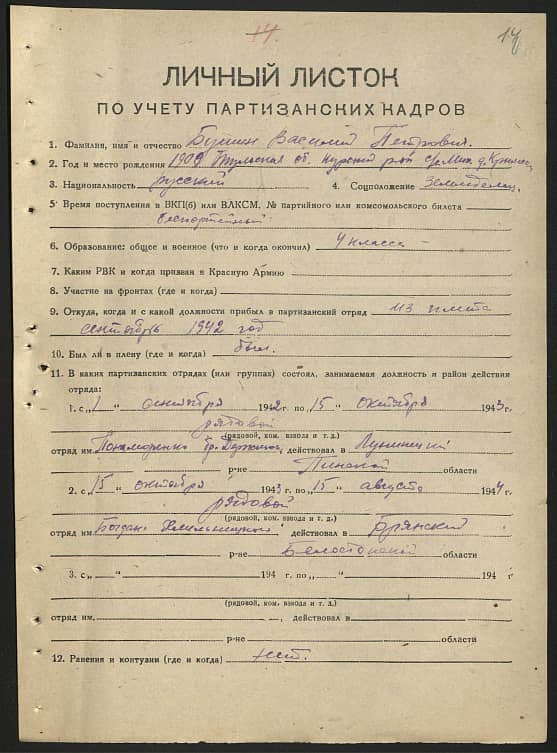 14
17
ЛИЧНЫЙ ЛИСТОК
ПО УЧЕТУ ПАРТИЗАНСКИХ КАДРОВ
1. Фамилия, имя и отчество Василий Петрович.
2. Год и место рождения 1909 Тульская об.
3. Национальность русский 4. Соцположение Земледелец
5. Время поступления в ВКП(б) или ВЛКСМ, № партийного или комсомольского билета
беспартейный
6. Образование: общее и военное (что и когда окончил) 4 класса –
7. Каким РВК и когда призван в Красную Армию
8. Участие на фронтах (где и когда)
9. Откуда, когда и с какой должности прибыл в партизанский отряд из плена
сентябрь 1942 год
10. Был ли в плену (где и когда) был.
11. В каких партизанских отрядах (или группах) состоял, занимаемая должность и район действия
отряда:
1. с „1 “ сентября 1942 г. по „15 “ октября 1943 г.
рядовой
(рядовой, ком. взвода и т. д.)
отряд им. Пономаренко бр. действовал в Лунинецкий
р-не Пинской области
2. с „15 “ октября 1943 г. по „15 “ августа 1944 г.
рядовой
(рядовой, ком. взвода и т. д.)
отряд им. Богдана Хмельницкого действовал в Брянский
р-не Белостокской области
3. с „ “ 194 г. по „ “ 194 г.
(рядовой, ком. взвода и т. д.)
отряд им. , действовал в
р-не области
12. Ранения и контузии (где и когда) нет.